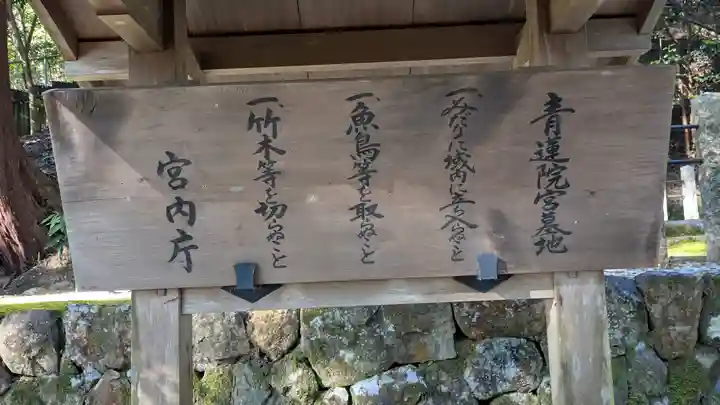 青蓮院宮墓地
一、みだりに域内に立ち入らぬこと
一、魚鳥等を取らぬこと
一、竹木等を切らぬこと
宮内庁